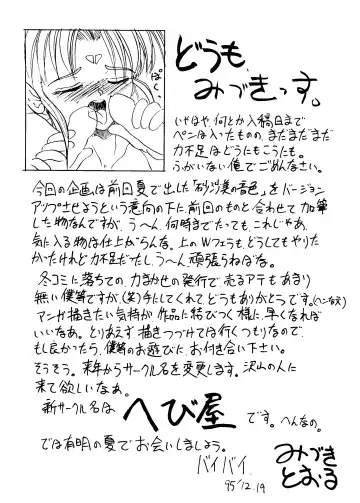 どうも、
みづきっす。
いやはや、何とか入稿日まで
ペンは入ったものの、まだまだまだ
力不足はどうにもこうにも。
ふがいない俺でごめんなさい。
今回の企画は前回夏で出した「砂沙美の音色」をバージョン
アップさせようという意向の下に、前回のものと合わせて加筆
した物なんですが、うーん、何時までたっても、これじゃあ、
気に入る物は仕上がらんな。上のWフェラも、どうしてもやりた
かったけれど力不足だし、うーん頑張らねばな。
冬コミに落ちての、力まかせの発行で、売るアテもあまり
無い僕等ですが、(笑)手にしてくれてどうもありがとうです。(ヘンな文)
アンが描きたい気持が作品に結びつく様に、早くなれば
いいなあ。とりあえず、描きつづけては行くつもりなので、
もし良かったら、僕等のお遊びに、お付き合い下さい。
そうそう。来年からサークル名を変更します。沢山の人に
来て欲しいなあ。
新サークル名は へび屋 です。へんなの。
では有明の夏でお会いしましょう。
バイバイ
95/12.19
みづき
とおる